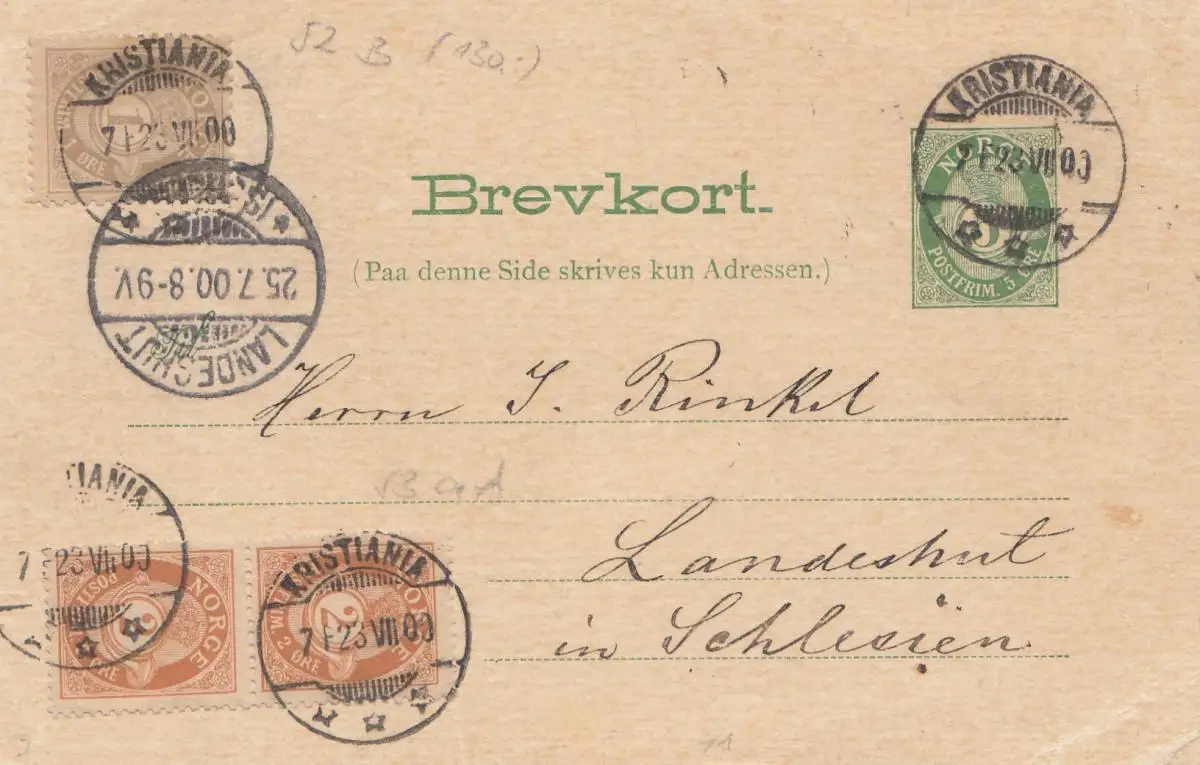 52 B (13a.)
KRISTIANIA
7 F 23 VII 00
1 ØRE
KRISTIANIA
23 VII 00
NORGE
POSTFRIM. 5 ØRE
Brevkort.
(Paa denne Side skrives kun Adressen.)
LANDESHUT
25.7.00.8-9V.
Herrn J. Rinkel
Landeshut
in Schlesien
KRISTIANIA
7 F 23 VII 00
NORGE
2
2 ØRE
TIANIA
23 VII 00